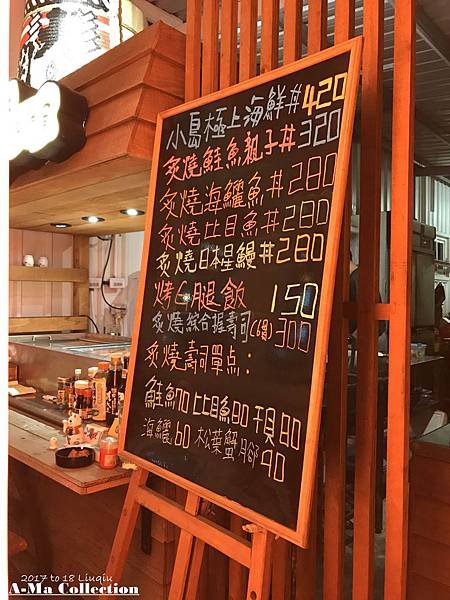 小島極上海鮮丼420
炙燒鮭魚親子丼320
炙燒海鱺魚丼280
炙燒比目魚丼280
炙燒日本星鰻丼280
烤G腿飯 150
炙燒綜合握壽司(6貫)300
炙燒壽司單点：
鮭魚70 比目魚80 干貝80
海鱺60 松葉蟹腳90
2017 to 18 Liuqiu
A-Ma Collection